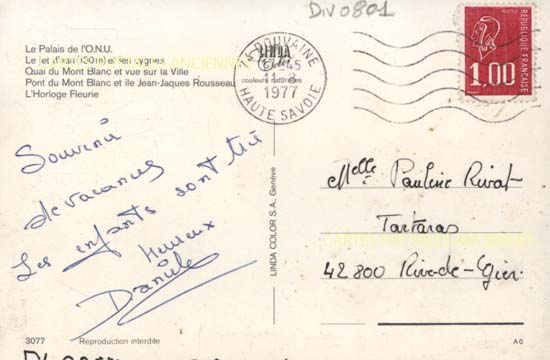 Div0801
Le Palais de l'O.N.U.
Le jet d'eau (130m) et les cygnes
Quai du Mont Blanc et vue sur la Ville
Pont du Mont Blanc et ile Jean-Jacques Rousseau
L'Horloge Fleurie
couleurs naturelles
74 DOUVAINE
11-8
1977
HAUTE SAVOIE
POSTES
REPUBLIQUE FRANCAISE
1,00
Souvenir
de vacances
Les enfants sont très
heureux
Danièle
LINDA COLOR S.A. Genève
Melle Pauline Rivat
Tartaras
42800 Rive-de-Gier
3077 Reproduction interdite
A0